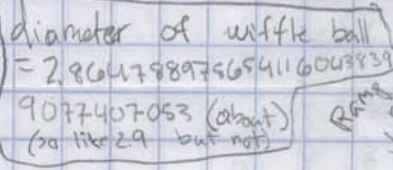 diameter of wiffle ball
= 2.864788975654116043839
9077407053 (about)
(so like 2.9 but not)